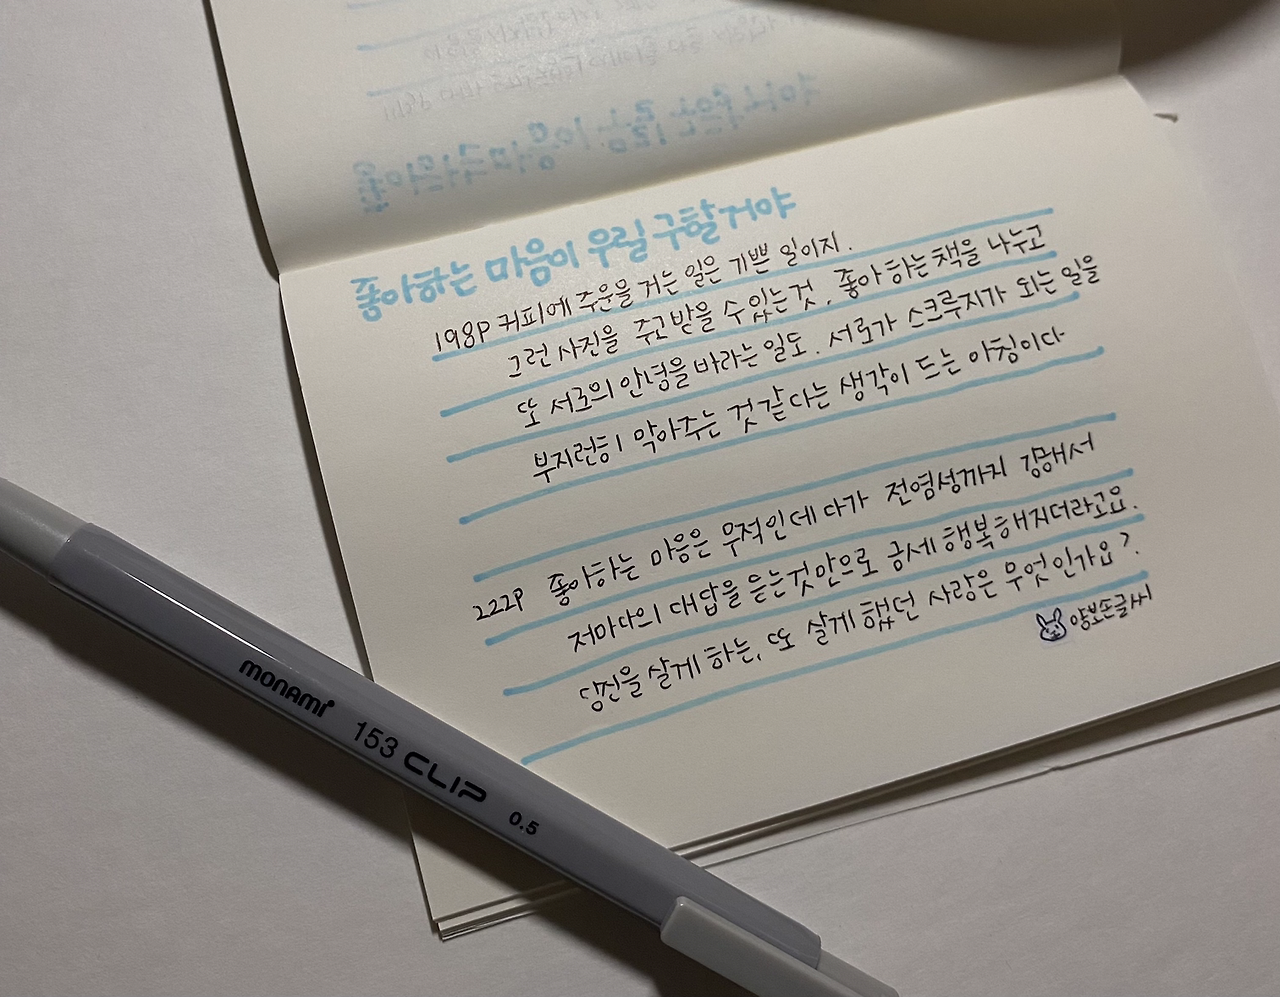 좋아하는 마음이 우릴 구할거야
198P 커피에 주운을 거는 일은 기쁜 일이지.
그런 사진을 주고받을 수 있는것. 좋아하는 책을 나누고
또 서로의 안녕을 바라는 일도. 서로가 스크루지가 되는 일을
부지런히 막아주는 것 같다는 생각이 드는 아침이다
222P 좋아하는 마음은 무적인데다가 전염성까지 강해서
저마다의 대답을 듣는것만으로 금세 행복해지더라고요.
당신을 살게 하는, 또 살게 했던 사랑은 무엇인가요?
양보손글씨
monami 153 CLIP 0.5